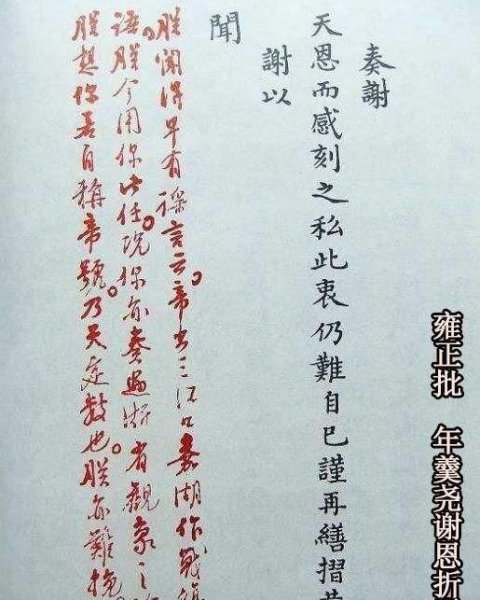 雍正批　年羹尧谢恩折
奏謝
天恩而感刻之私此衷仍難自已謹再繕摺
謝以
聞
朕聞得早有謠言云帝出三江口嘉湖作戰
語朕今用你此任况你亦奏過浙省觀象之
朕想你若自稱帝號乃天定數也朕亦難挽